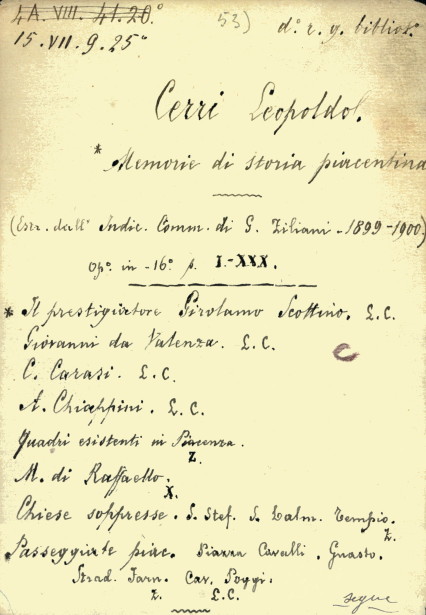 4A. VIII. 41.20.°
53)
d°. r. g. bibliot.°
15.VII.9.25°
Cerri Leopoldo.
* Memorie di storia piacentina
(Estr. dall' Indic. Comm. di G. Ziliani - 1899-1900)
Op.° in -16.° p. I.-XXX.
* Il prestigiatore Girolamo Scottino. L.C.
Giovanni da Valenza. L.C.
C. Carasi. L.C.
A. Chiappini. L.C.
Quadri esistenti in Piacenza.
Z.
M. di Raffaello.
X.
Chiese soppresse. S. Stef. S. Salm. Tempio.
Z.
Passeggiate piac. Piazza Cavalli. Guasto.
Strad. Farn. Cav. Poggi.
Z. L.C.
segue